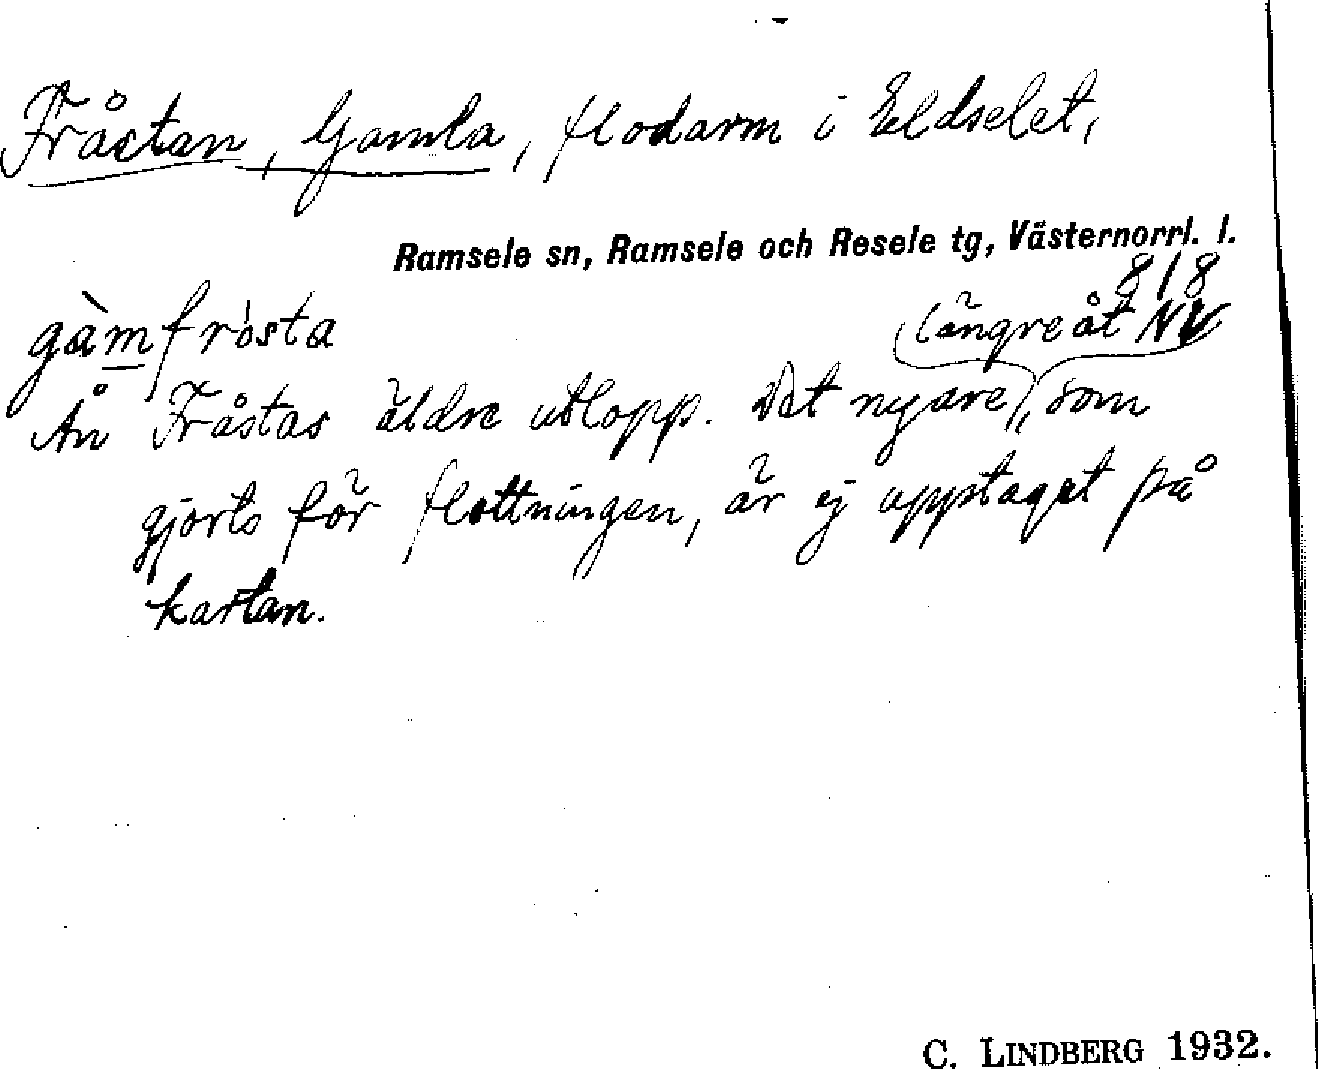 Fråstan, Gamla, flodarm i Eldselet,
Ramsele sn, Ramsele och Resele tg, Västernorrl. l.
818
gàmfrösta
längre åt NV
Ån Fråstas äldre utlopp. Det nyare, som
gjorts för flottningen, är ej upptaget på
kartan.
C. LINDBERG 1932.